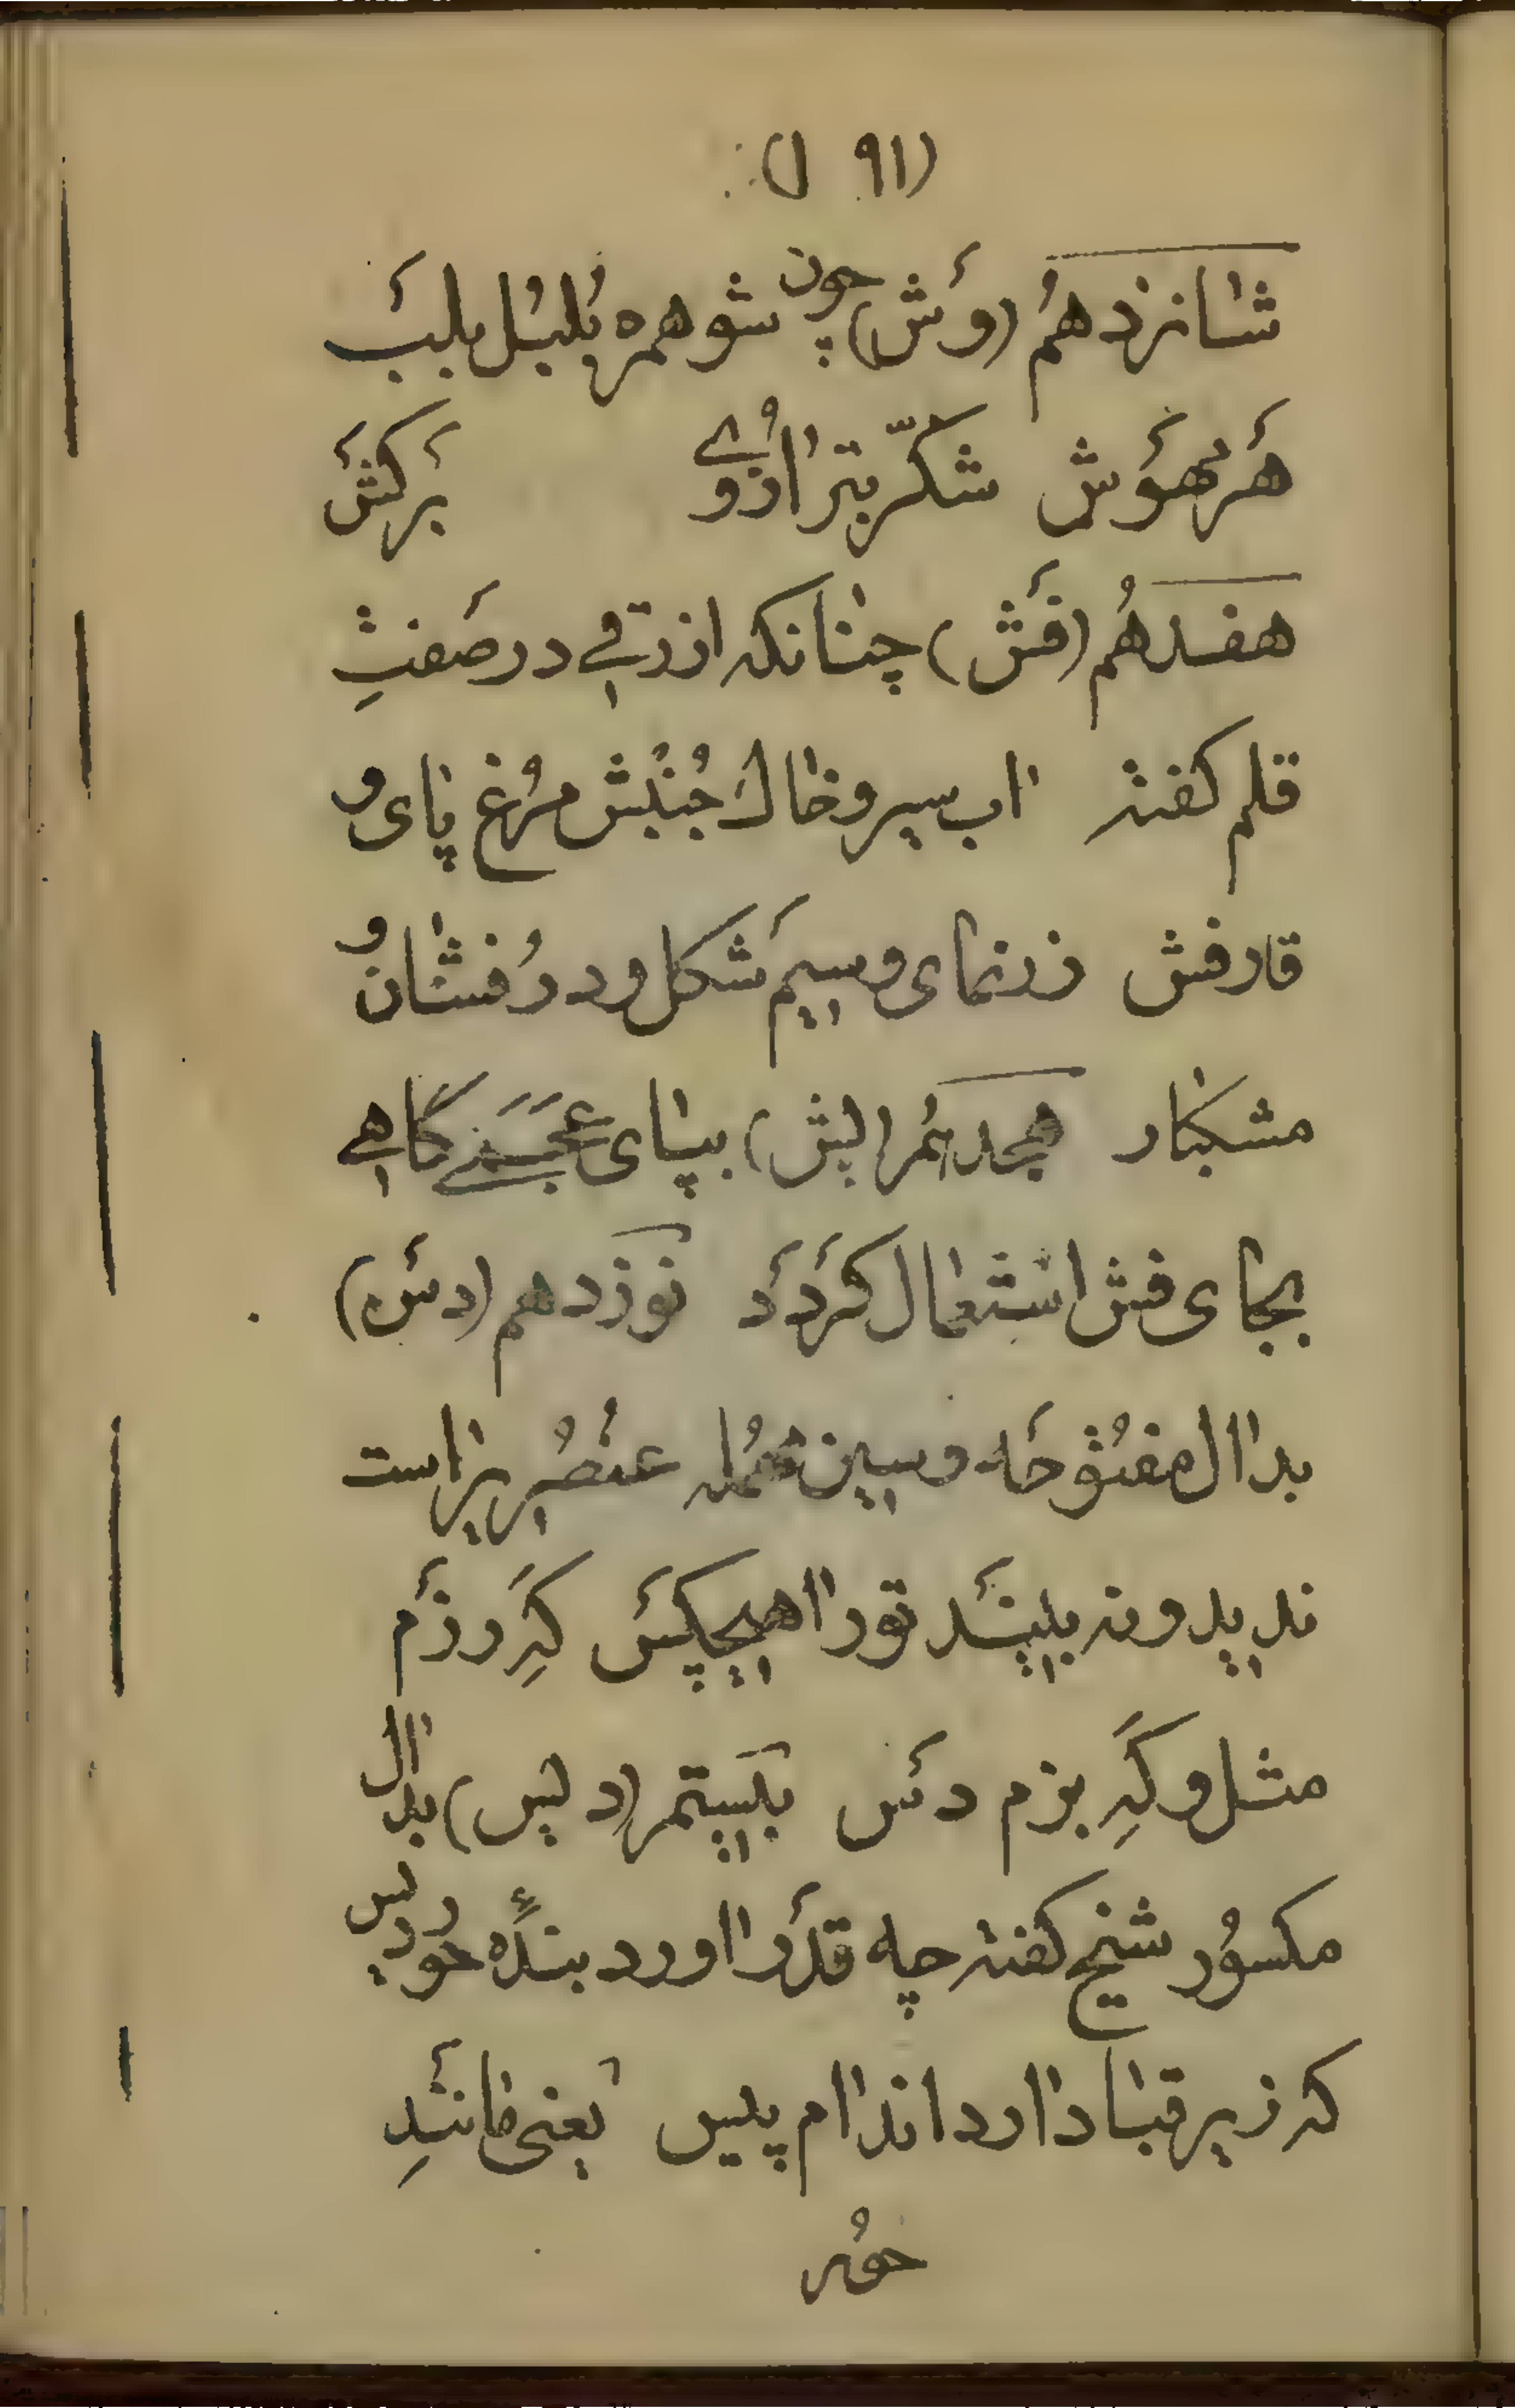 (۱۹۱)
شانزدهُم (وَش) چون شو همره بُلبُل بلبَ
هَر مهوَش شکّر بترازُوے بَرکَش
هفدهُم (فَش) چنانکه ازرقے در صَفتِ
قلم کفته اب سیر و خاك جُنبُش مرُغ پای و
قارفش زرنمای و سیم شَکل و درُفشان و
مشکبار هجدهُم (پش) ببای عَجَمے گاهے
بجای فش استعمال کَردَد نوَزدهم (دَس)
بدال مفتُوحَه و سین مهُمله عنصُری راست
ندیدو نه بیند تورا هیچکَس کَهِ رزَم
مثل و کَهِ بزم دَس بیستم (دیس) بدال
مکسوُر شیخ کفته چه قدَر اورد بندَهٔ حوردیس
که زیر قبا دارد اندام پیس یعنی مانَندِ
حوُر